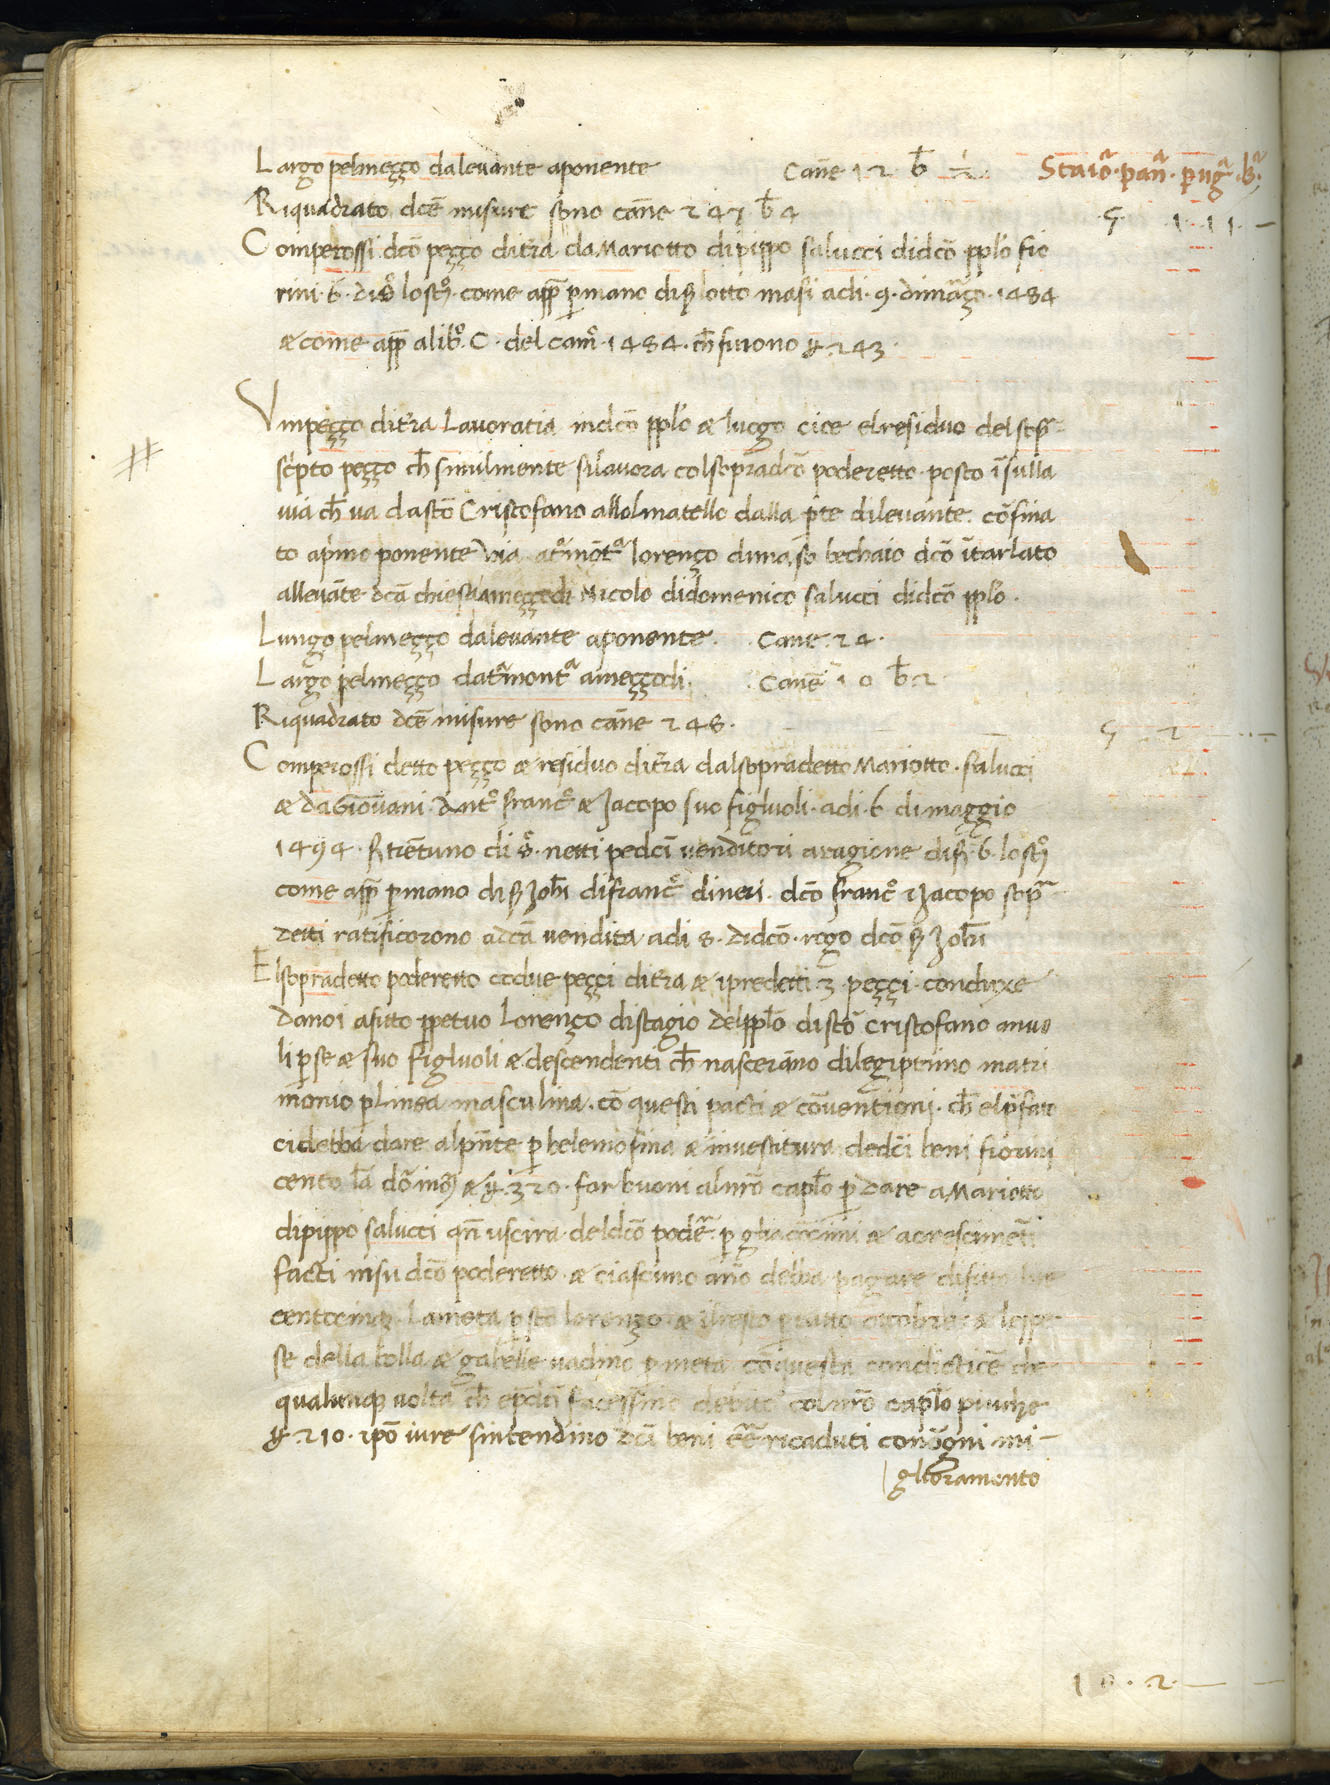 Largo pelmeçço dalevante aponente Canne 12 b̄ ½ Staiᵃ · panᵃ · pugᵃ · bᵃ
Riquadrato dcē misure sono canne 247 b̄ 4 5 · 1 · 11 · —
Comperossi dcō peçço ditr̄a da Mariotto dipippo salucci didcō pplo fio
rini · 6 · come app̄ p̄mano di lotto masi adi · 9 · dimaço · 1484
& come app̄ alibº · C · del camº · 1484 · ch̄ furono 243 ·
Vnpeçço ditr̄a Lavoratia indcō pplo & luogo cioe elresiduo del sop̄
sc̄pto peçço ch̄ similmente silavora colsopradcō poderetto · posto ī sulla
via ch̄ va dastō Cristofano allolmatello dalla p̄te dilevante · cōfina
to aprimo ponente via · atr̄montᵃ lorenço bechaio dcō
allevāte dcā chiesa ameççodi Nicolo didomenico salucci didcō pplo ·
Lungo pelmeçço dalevante aponente · Cane · 24 ·
Largo pelmeçço datr̄montᵃ ameççodi · Canne 10 b̄ 2
Riquadrato dcē misure sono canne 248 · 5 · 2 — · · —
Comperossi detto peçço & residuo ditr̄a dalsopradetto Mariotto · salucci
& da Giovani · Antº francº & Jacopo suo figluoli · adi · 6 di maggio
1494 · trentuno di · netti pedcī venditori aragione di · 6 ·
come app̄ p̄mano di Johī difrancº dineri · dcō francº & Jacopo sopr̄a
detti ratificorono adcā vendita adi 8 · didcō · rogo dcō Johī
Elsopradetto poderetto cō due peççi ditr̄a & ipredetti · 3 · peççi · conduxe
danoi afitto ppetuo Lorenço distagio delpplo distō Cristofano
li p̄ se & suo figluoli & descendenti ch̄ nascerāno dilegiptimo matri
monio p̄ Linea masculina · cō questi pacti & cōventioni · ch̄
cidebba dare alpn̄te p̄ helemosina & investitura dedcī beni fiorini
cento & 320 · far buoni alnrō caplo p̄ dare a Mariotto
dipippo salucci qn̄ uscira deldcō podeᵉ · p̄ gliaconcimi & acrescimēti
facti insu dcō poderetto · & ciascuno anno debba pagare difitto
centocinq · Lameta p̄ stō lorenzo · & ilresto p̄ tutto octobre · &
se della bolla & gabelle vadino p̄ meta cō questa condictione che
qualunq volta ch̄ epdcī facessino debito colnrō caplo piuche
210 · ipō iure sintendino dcī beni ricaduti conogni mi-
glioramento
10 · 2 · — —